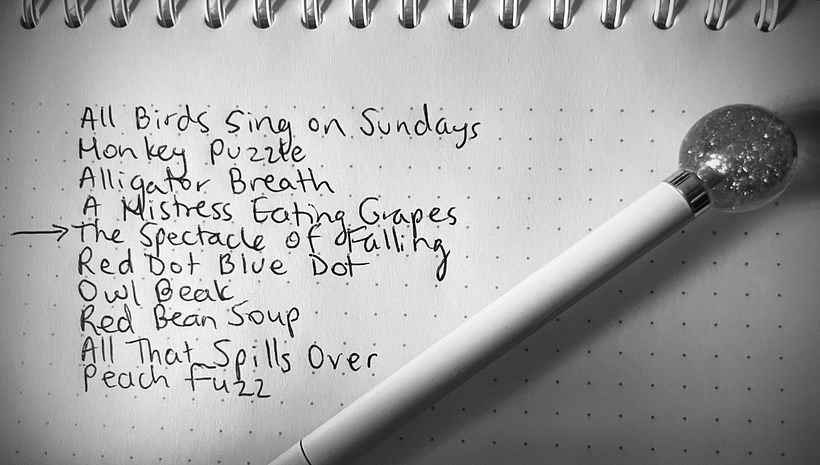 All Birds Sing on Sundays
Monkey Puzzle
Alligator Breath
A Mistress Eating Grapes
→ The Spectacle of Falling
Red Dot Blue Dot
Owl Beak
Red Bean Soup
All That Spills Over
Peach Fuzz